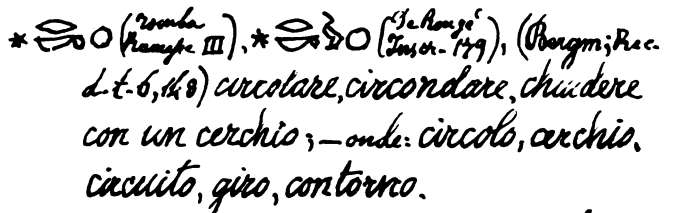 * (Tomba Ramesse III), * (De Rougé Inscr. 179), (Bergm; Rec.
d. t. 6, 168) circolare, circondare, chiudere
con un cerchio; — onde: circolo, cerchio,
circuito, giro, contorno.